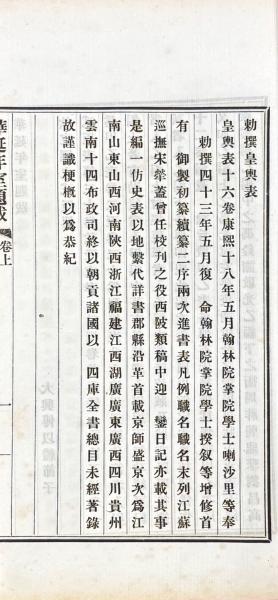 勅撰皇輿表
皇輿表十六卷康熙十八年五月翰林院掌院學士喇沙里等奉
勅撰四十三年五月復　命翰林院掌院學士揆叙等增修首
有　御製初纂續纂二序兩次進書表凡例職名職名末列江蘇
巡撫宋犖蓋曾任校刋之役西陂類稿中迎　鑾日記亦載其事
是編一仿史表以地繫代詳書郡縣沿革首載京師盛京次為江
南山東山西河南陝西浙江福建江西湖廣廣東廣西四川貴州
雲南十四布政司終以朝貢諸國以　四庫全書總目未經著錄
故謹識梗槪以為恭紀
華延年室題跋
卷上
一